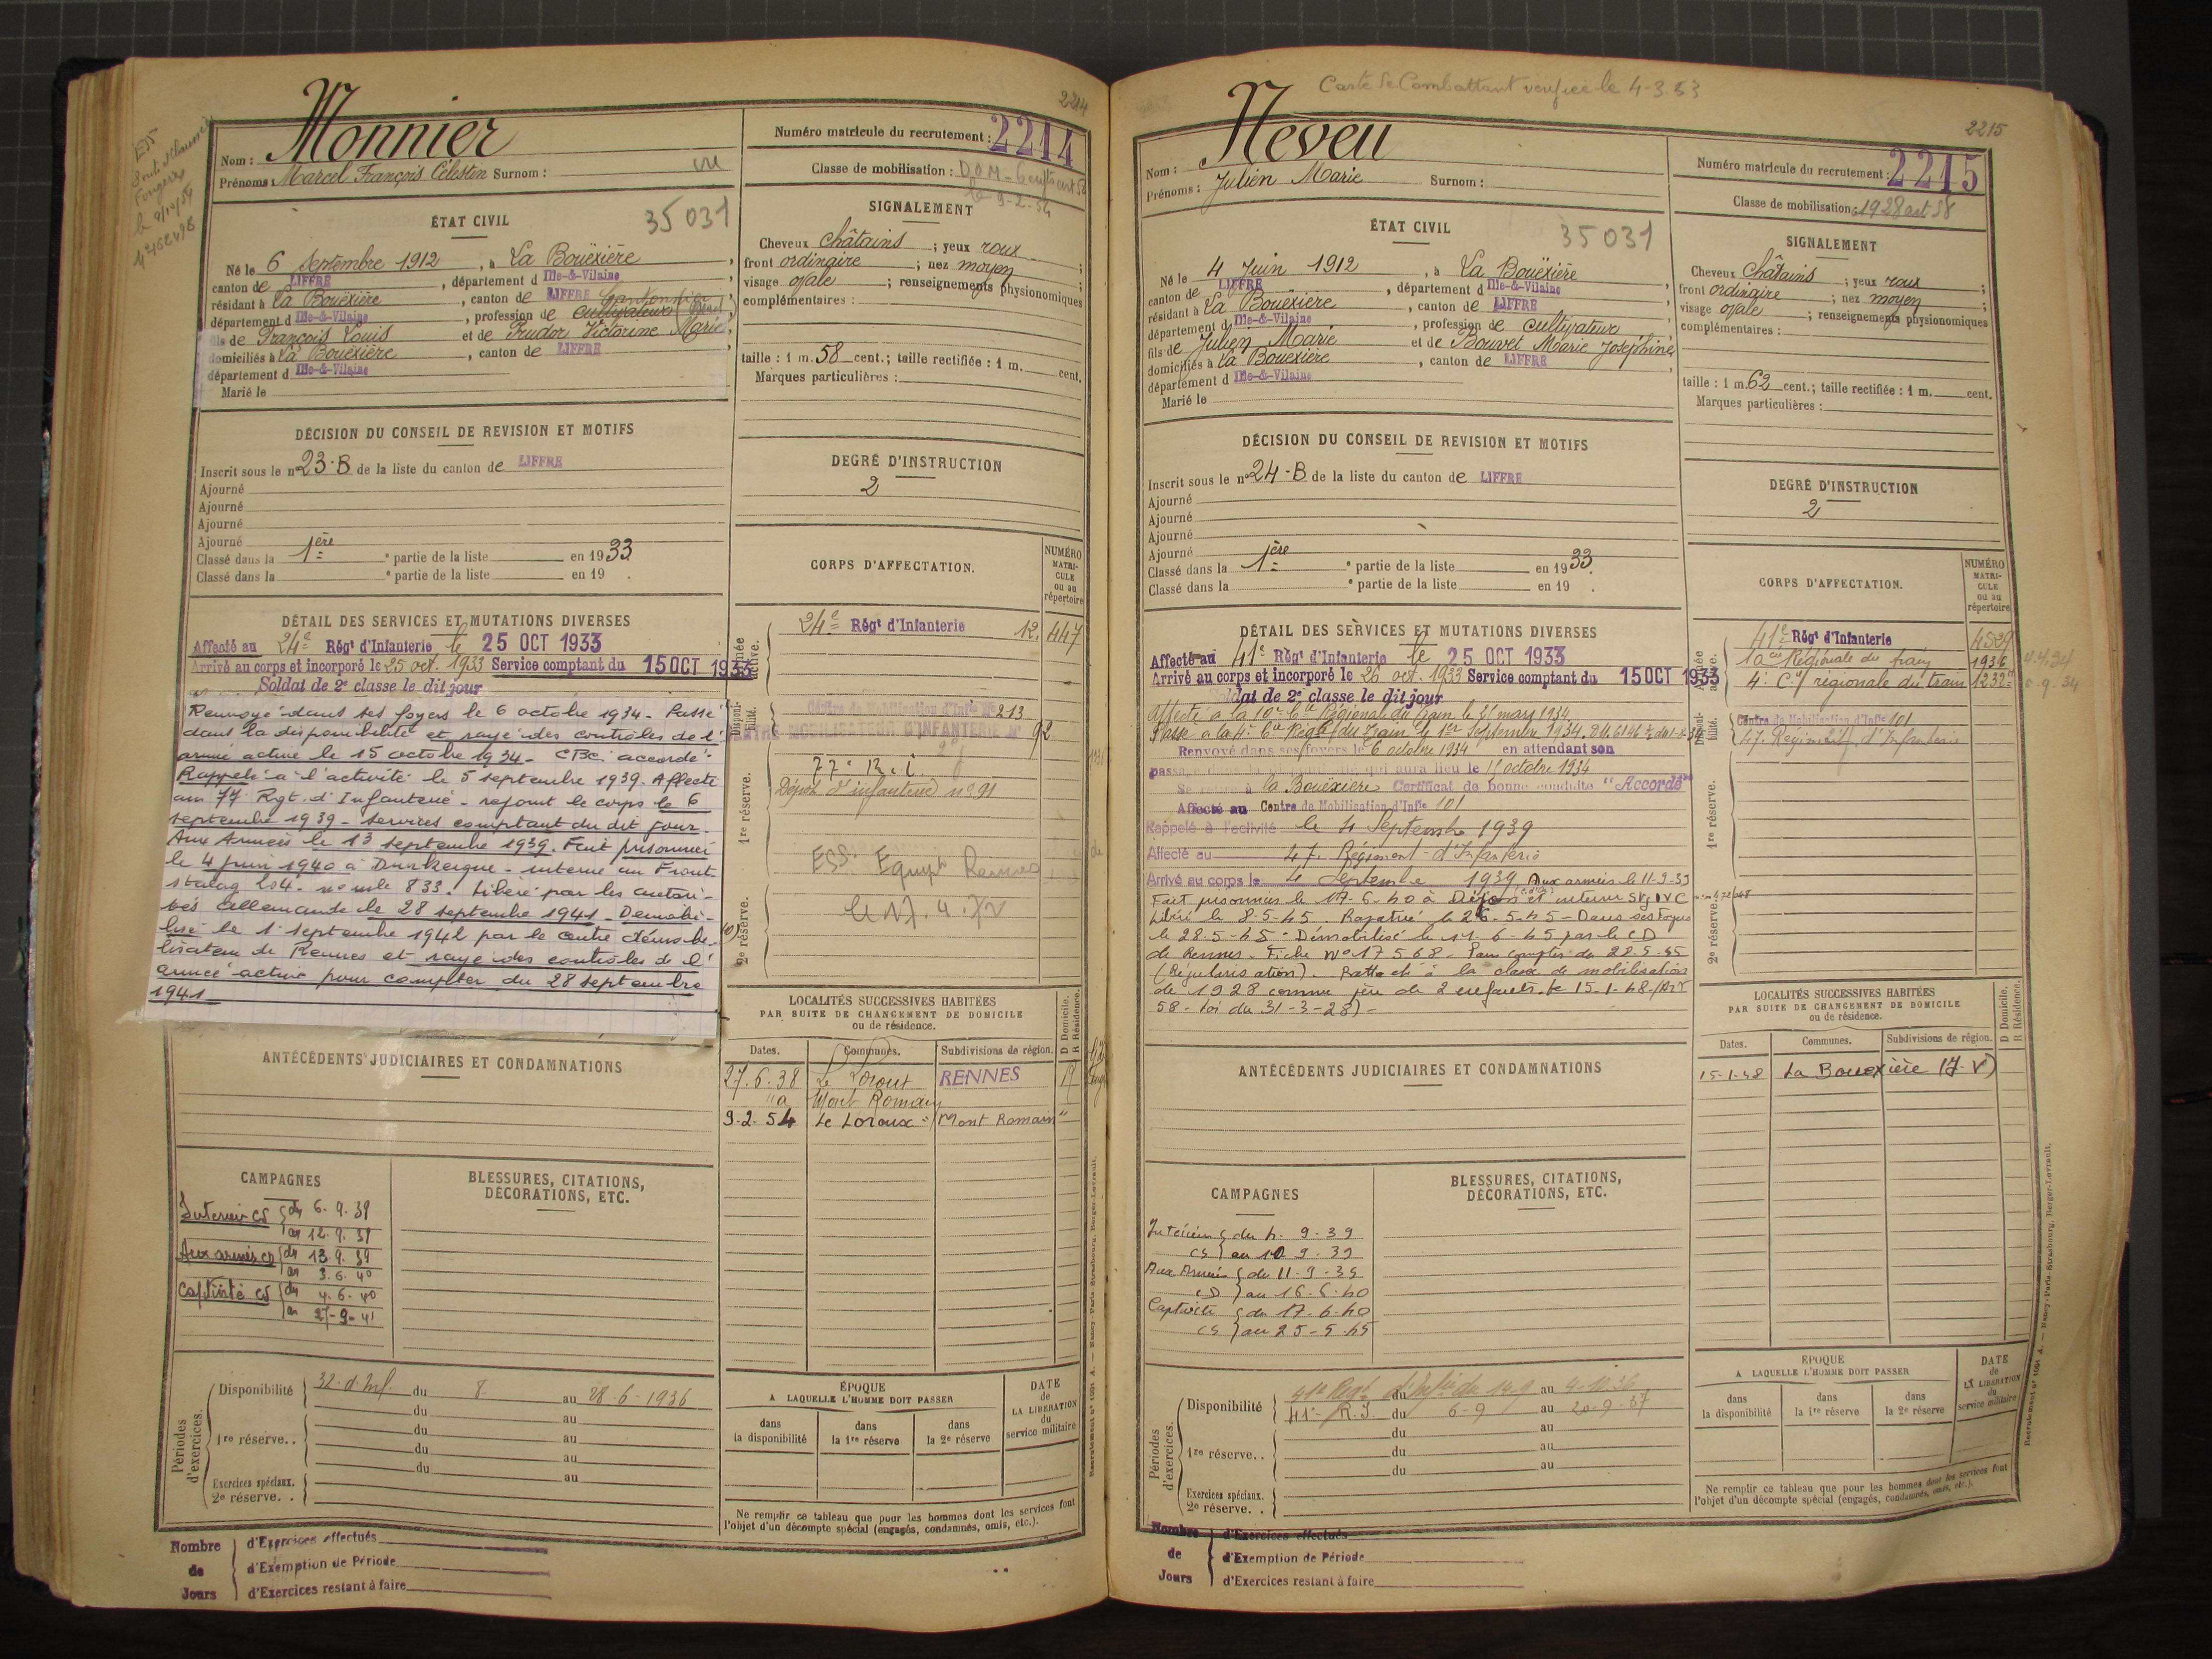 2214
Monnier
Nom :
Prénoms : Marcel François Célestin Surnom :
vu
Numéro matricule du recrutement : 2214
Classe de mobilisation :
9-2-54
ÉTAT CIVIL
35031
Né le 6 Septembre 1912, à La Bouëxière,
canton de LIFFRE, département d Ille-&-Vilaine
résidant à La Bouëxière, canton de LIFFRE
département d Ille-&-Vilaine, profession de cultivateur
fils de François Louis et de Frudor Victorine Marie,
domiciliés à La Bouëxière, canton de LIFFRE
département d Ille-&-Vilaine
Marié le
SIGNALEMENT
Cheveux châtains ; yeux roux ;
front ordinaire ; nez moyen ;
visage ovale ; renseignements physionomiques
complémentaires :
taille : 1 m. 58 cent.; taille rectifiée : 1 m. cent.
Marques particulières :
DÉCISION DU CONSEIL DE REVISION ET MOTIFS
Inscrit sous le n° 23-B de la liste du canton de LIFFRE
Ajourné
Ajourné
Ajourné
Ajourné
Classé dans la 1ère e partie de la liste en 1933
Classé dans la e partie de la liste en 19 .
DEGRÉ D'INSTRUCTION
2
DÉTAIL DES SERVICES ET MUTATIONS DIVERSES
Affecté au 24e Régt d'Infanterie le 25 OCT 1933
Arrivé au corps et incorporé le 25 oct. 1933 Service comptant du 15 OCT 1933
Soldat de 2e classe le dit jour
Renvoyé dans ses foyers le 6 octobre 1934 - Passé
dans la disponibilité et rayé des contrôles de l'
armée active le 15 octobre 1934 - CBC. accordé.
Rappelé à l'activité le 5 septembre 1939. Affecté
au 77e Rgt. d'Infanterie - rejoint le corps le 6
septembre 1939 - services comptant du dit jour.
Aux Armées le 13 septembre 1939. Fait prisonnier
le 4 juin 1940 à Dunkerque - interné au Front
stalag 204 - n° mle 833. Libéré par les autori-
tés allemandes le 28 septembre 1941 - Démobi-
lisé le 1 septembre 1942 par le centre démobi-
lisateur de Rennes et rayé des contrôles de l'
armée active pour compter du 28 septembre
1941
CORPS D'AFFECTATION.
NUMÉRO MATRI-CULE ou au répertoire
Armée active.
24e Régt d'Infanterie 12.447
Disponibilité.
Centre de Mobilisation d'Infie N° 213
CENTRE MOBILISATEUR D'INFANTERIE N° 92
1re réserve.
77e R.I.
Dépôt d'infanterie n° 91
2e réserve.
LOCALITÉS SUCCESSIVES HABITÉES
PAR SUITE DE CHANGEMENT DE DOMICILE
ou de résidence.
D Domicile. R Résidence.
Dates. Communes. Subdivisions de région.
27.6.38 Le Loroux RENNES
"à Mont Romain
9-2-54 Le Loroux "Mont Romain"
ANTÉCÉDENTS JUDICIAIRES ET CONDAMNATIONS
CAMPAGNES
Intérieur CS du 6.9.39
au 12.9.39
Aux armées CD du 13.9.39
au 3.6.40
Captivité CS du 4.6.40
au 27-9-41
BLESSURES, CITATIONS,
DÉCORATIONS, ETC.
Périodes d'exercices.
Disponibilité 32. d'Inf. du 8 au 28-6-1936
du au
1re réserve. . du au
du au
du au
Exercices spéciaux.
2e réserve. .
ÉPOQUE
A LAQUELLE L'HOMME DOIT PASSER
dans la disponibilité
dans la 1re réserve
dans la 2e réserve
DATE de LA LIBÉRATION du service militaire
Ne remplir ce tableau que pour les hommes dont les services font
l'objet d'un décompte spécial (engagés, condamnés, omis, etc.).
Nombre de Jours
d'Exercices effectués
d'Exemption de Période
d'Exercices restant à faire
Carte de Combattant verifiée le 4-3-53
2215
Neveu
Nom :
Prénoms : Julien Marie Surnom :
Numéro matricule du recrutement : 2215
Classe de mobilisation : 1928 art 58
ÉTAT CIVIL
35031
Né le 4 Juin 1912, à La Bouëxière
canton de LIFFRE, département d Ille-&-Vilaine
résidant à La Bouëxière, canton de LIFFRE
département d Ille-&-Vilaine, profession de cultivateur
fils de Julien Marie et de Bouvet Marie Joséphine,
domiciliés à La Bouëxière, canton de LIFFRE
département d Ille-&-Vilaine
Marié le
SIGNALEMENT
Cheveux châtains ; yeux roux ;
front ordinaire ; nez moyen ;
visage ovale ; renseignements physionomiques
complémentaires :
taille : 1 m. 62 cent.; taille rectifiée : 1 m. cent.
Marques particulières :
DÉCISION DU CONSEIL DE REVISION ET MOTIFS
Inscrit sous le n° 24-B de la liste du canton de LIFFRE
Ajourné
Ajourné
Ajourné
Ajourné
Classé dans la 1ère e partie de la liste en 1933.
Classé dans la e partie de la liste en 19 .
DEGRÉ D'INSTRUCTION
2
DÉTAIL DES SERVICES ET MUTATIONS DIVERSES
Affecté au 41e Régt d'Infanterie le 25 OCT 1933
Arrivé au corps et incorporé le 26 oct. 1933 Service comptant du 15 OCT 1933
Soldat de 2e classe le dit jour
Affecté à la 10e Cie Régional du train le 31 mars 1934
Passé à la 4e Cie Régle du Train le 1er Septembre 1934.
Renvoyé dans ses foyers le 6 octobre 1934 en attendant son
passage qui aura lieu le 15 octobre 1934
Se retire à la Bouëxière Certificat de bonne conduite "Accordé"
Affecté au Centre de Mobilisation d'Infie 101
Rappelé à l'activité le 4 Septembre 1939
Affecté au 47e Régiment d'Infanterie
Arrivé au corps le 4 Septembre 1939 Aux armées le 11-9-39
Fait prisonnier le 17-6-40 à Dijon et interné Stg IV C
Libéré le 8-5-45. Rapatrié le 26-5-45 - Dans ses foyers
le 28-5-45. Démobilisé le 11-6-45 par le CD
de Rennes - Fiche N° 17568. Pour compter du 28-5-45
(Régularisation). Rattaché à la classe de mobilisation
de 1928 comme père de 2 enfants le 15-1-48 (Art
58 - loi du 31-3-28) -
CORPS D'AFFECTATION.
NUMÉRO MATRI-CULE ou au répertoire
Armée active.
41e Régt d'Infanterie 4539
10e Cie Régionale du train 1936
4e Cie régionale du train 1232
Disponibilité.
Centre de Mobilisation d'Infie 101
47e Régiment d'Infanterie
1re réserve.
2e réserve.
LOCALITÉS SUCCESSIVES HABITÉES
PAR SUITE DE CHANGEMENT DE DOMICILE
ou de résidence.
D Domicile. R Résidence.
Dates. Communes. Subdivisions de région.
15-1-48 La Bouexière (I-V)
ANTÉCÉDENTS JUDICIAIRES ET CONDAMNATIONS
CAMPAGNES
Intérieur du 4.9-39
CS au 10 9-39
Aux Armées du 11-9-39
CD au 16-6-40
Captivité du 17-6-40
CS au 25-5-45
BLESSURES, CITATIONS,
DÉCORATIONS, ETC.
Périodes d'exercices.
Disponibilité 41e Regt d'Infie du 14-9 au
41e R.I. du 6-9 au 20-9-37
du au
1re réserve. . du au
du au
Exercices spéciaux.
2e réserve. .
ÉPOQUE
A LAQUELLE L'HOMME DOIT PASSER
dans la disponibilité
dans la 1re réserve
dans la 2e réserve
DATE de LA LIBÉRATION du service militaire
Ne remplir ce tableau que pour les hommes dont les services font
l'objet d'un décompte spécial (engagés, condamnés, omis, etc.).
Nombre de Jours
d'Exercices effectués
d'Exemption de Période
d'Exercices restant à faire